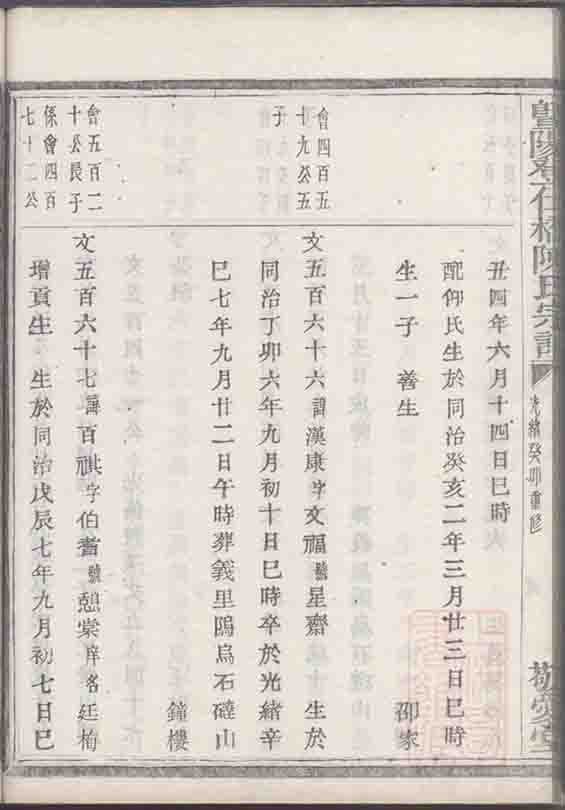 陳氏宗譜
光緒癸卯重修
丑四年六月十四日巳時
配仰氏生於同治癸亥二年三月廿三日巳時
生一子 善生 邵家
會四百五
十九公五
子
文五百六十六諱漢康字文福號星齋 生於
同治丁卯六年九月初十日巳時卒於光緒辛
巳七年九月廿二日午時葬義里塢烏石山
鐘樓
會五百二
十公長子
係會四百
七十二公
文五百六十七諱百祺字伯耆號憩棠庠名廷梅
增貢生 生於同治戊辰七年九月初七日巳